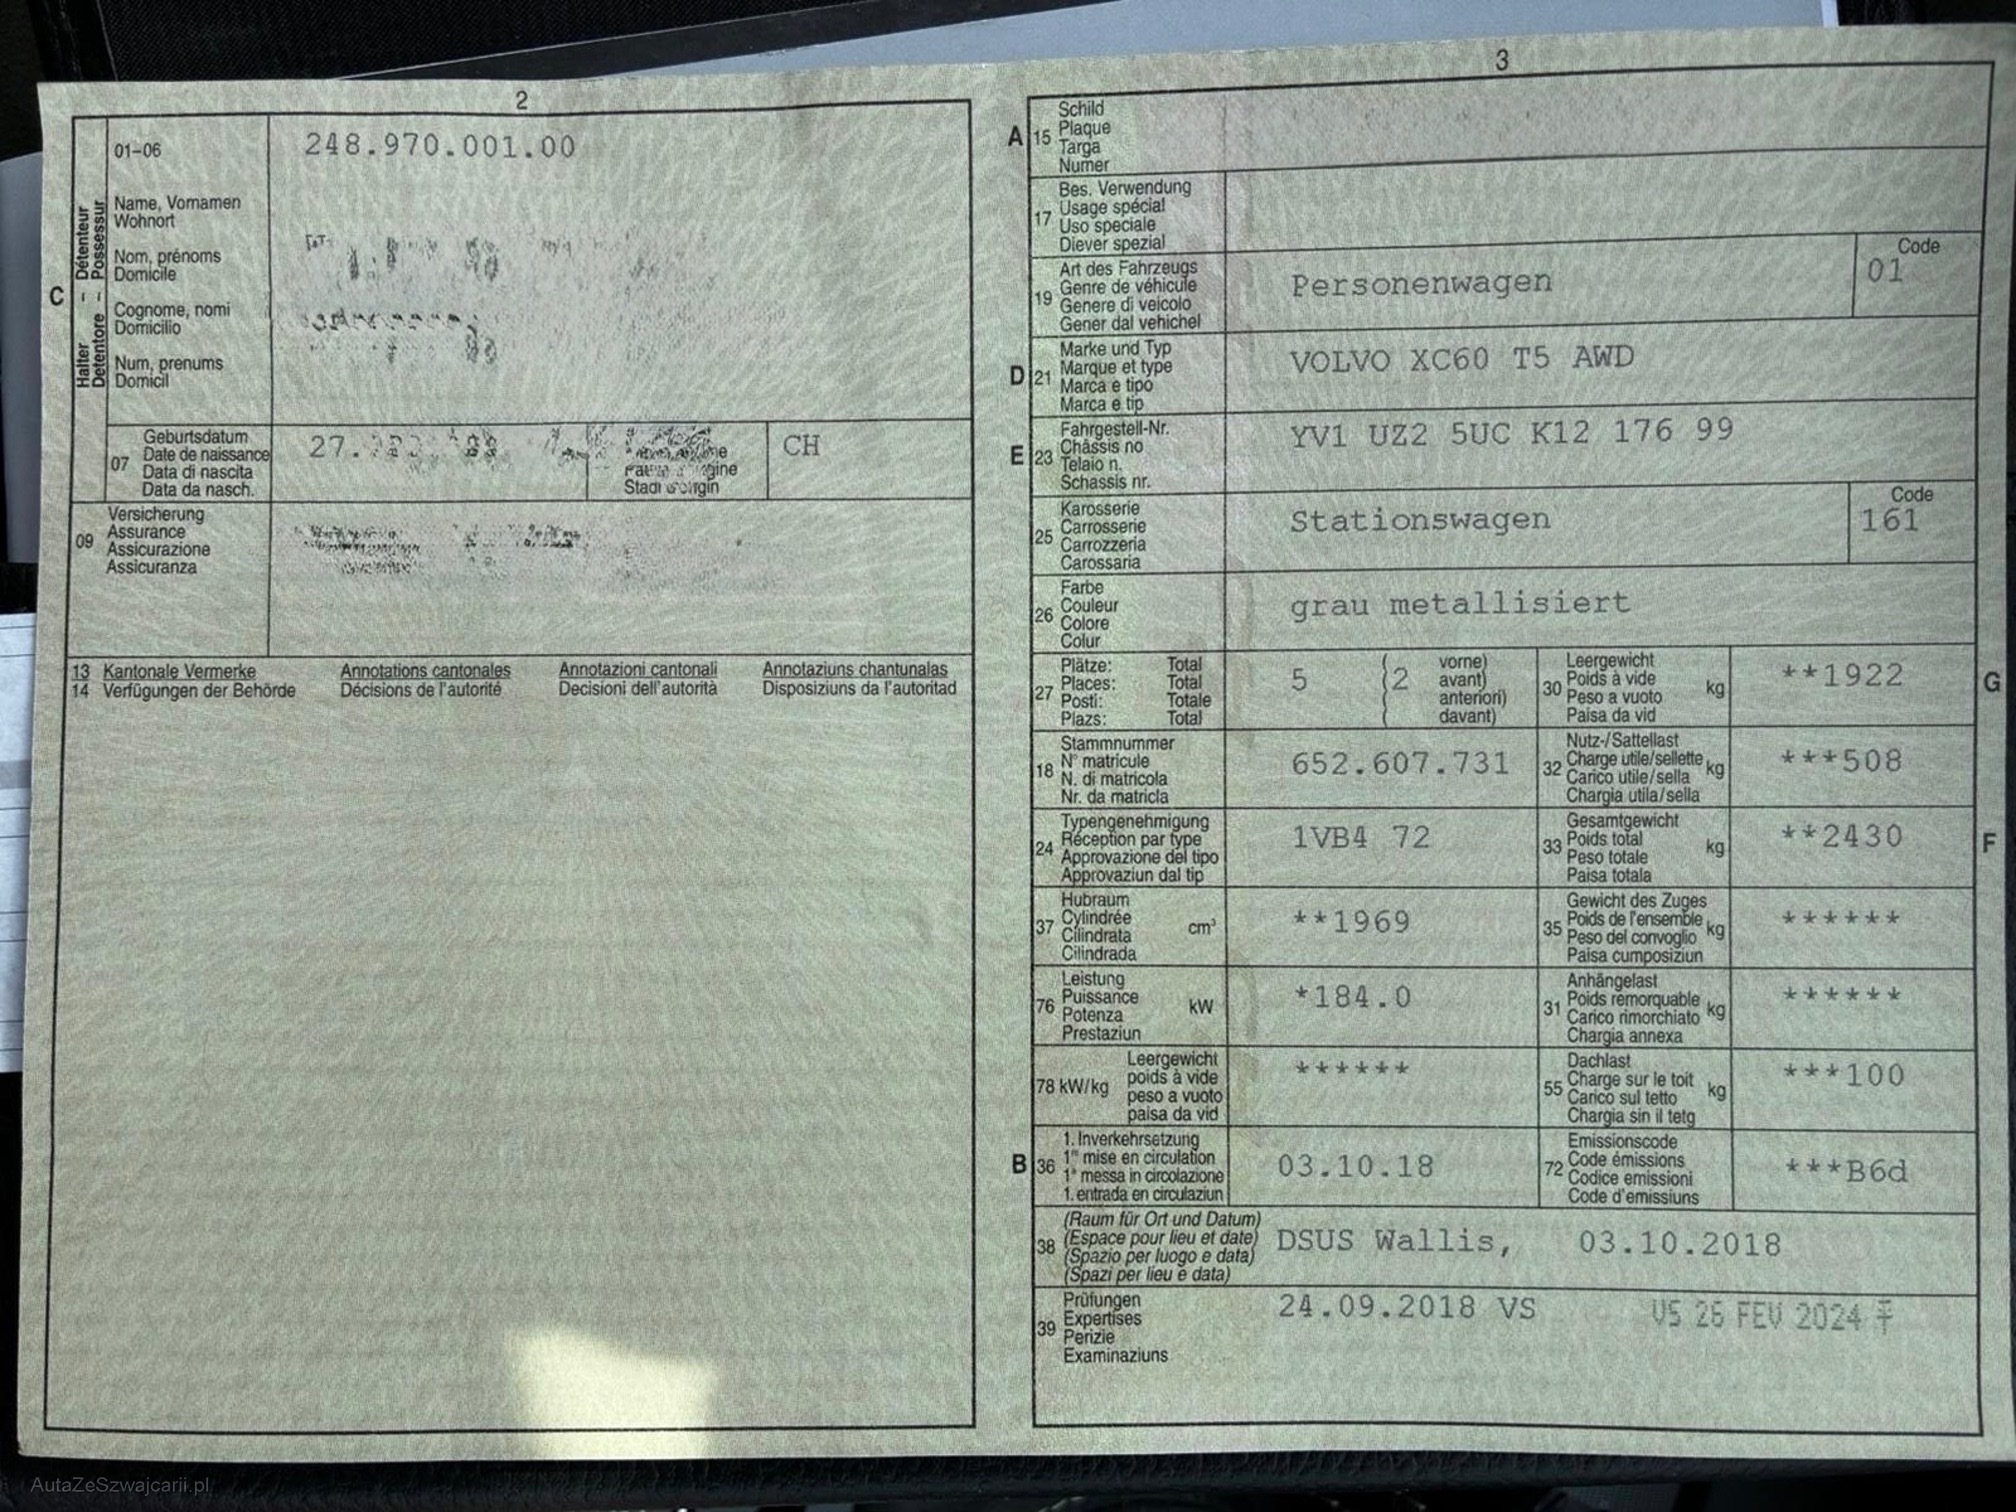 2
01-06
248.970.001.00
Halter - Détenteur
Detentore - Possessur
C
Name, Vornamen
Wohnort
Nom, prénoms
Domicile
Cognome, nomi
Domicilio
Num, prenums
Domicil
07
Geburtsdatum
Date de naissance
Data di nascita
Data da nasch.
27.
CH
09
Versicherung
Assurance
Assicurazione
Assicuranza
13 Kantonale Vermerke Annotations cantonales Annotazioni cantonali Annotaziuns chantunalas
14 Verfügungen der Behörde Décisions de l'autorité Decisioni dell'autorità Disposiziuns da l'autoritad
3
A 15
Schild
Plaque
Targa
Numer
17
Bes. Verwendung
Usage spécial
Uso speciale
Diever spezial
19
Art des Fahrzeugs
Genre de véhicule
Genere di veicolo
Gener dal vehichel
Personenwagen
Code
01
D 21
Marke und Typ
Marque et type
Marca e tipo
Marca e tip
VOLVO XC60 T5 AWD
E 23
Fahrgestell-Nr.
Châssis no
Telaio n.
Schassis nr.
YV1 UZ2 5UC K12 176 99
25
Karosserie
Carrosserie
Carrozzeria
Carossaria
Stationswagen
Code
161
26
Farbe
Couleur
Colore
Colur
grau metallisiert
27
Plätze: Total
Places: Total
Posti: Totale
Plazs: Total
5 (2
vorne)
avant)
anteriori)
davant)
30
Leergewicht
Poids à vide
Peso a vuoto
Paisa da vid
kg
**1922
G
18
Stammnummer
N° matricule
N. di matricola
Nr. da matricla
652.607.731
32
Nutz-/Sattellast
Charge utile/sellette
Carico utile/sella
Chargia utila/sella
kg
***508
24
Typengenehmigung
Réception par type
Approvazione del tipo
Approvaziun dal tip
1VB4 72
33
Gesamtgewicht
Poids total
Peso totale
Paisa totala
kg
**2430
F
37
Hubraum
Cylindrée
Cilindrata
Cilindrada
cm³
**1969
35
Gewicht des Zuges
Poids de l'ensemble
Peso del convoglio
Paisa cumposiziun
kg
******
76
Leistung
Puissance
Potenza
Prestaziun
kW
*184.0
31
Anhängelast
Poids remorquable
Carico rimorchiato
Chargia annexa
kg
******
78 kW/kg
Leergewicht
poids à vide
peso a vuoto
paisa da vid
******
55
Dachlast
Charge sur le toit
Carico sul tetto
Chargia sin il tetg
kg
***100
B 36
1. Inverkehrsetzung
1re mise en circulation
1a messa in circolazione
1. entrada en circulaziun
03.10.18
72
Emissionscode
Code émissions
Codice emissioni
Code d'emissiuns
***B6d
38
(Raum für Ort und Datum)
(Espace pour lieu et date)
(Spazio per luogo e data)
(Spazi per lieu e data)
DSUS Wallis, 03.10.2018
39
Prüfungen
Expertises
Perizie
Examinaziuns
24.09.2018 VS
VS 26 FEV 2024
AutaZeSzwajcarii.pl